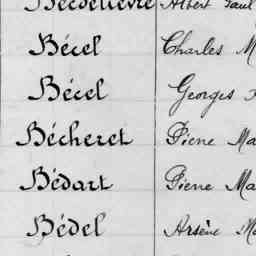 Becdelièvre Albert Paul
Bécel Charles M
Bécel Georges
Bécheret Pierre Ma
Bédart Pierre Ma
Bédel Arsène Ma